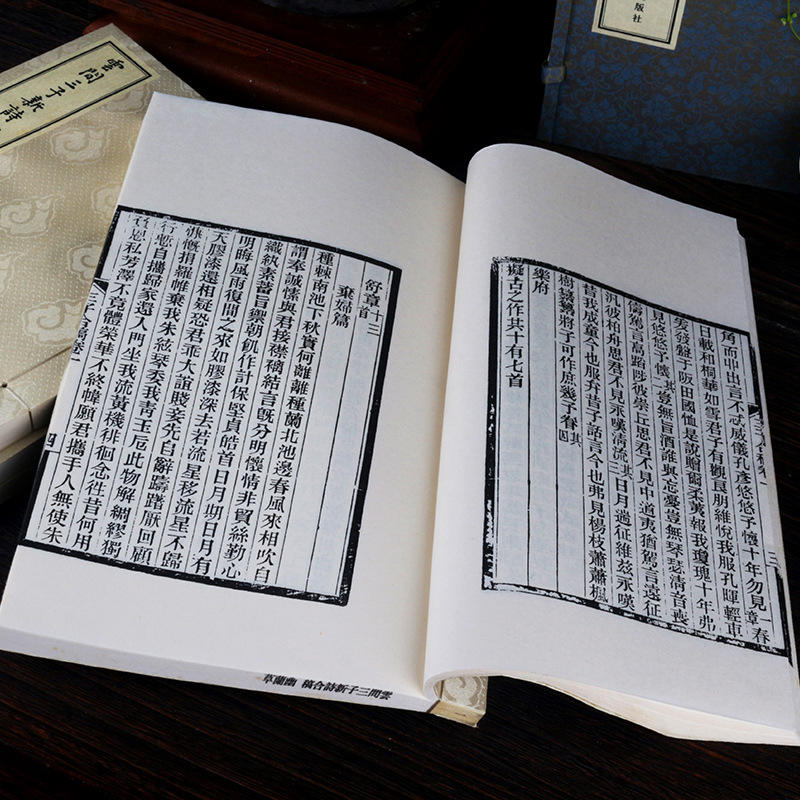 角一而甲出言不忒威儀孔彥悠悠予懷十年勿見一章春
日載和桐華如雪君子有觀朋維悅我服孔暉輕車
爰發盤于阪田國恤是說贈爾柔荑報我瓊瑰十年弗
見悠悠予懷其豈無旨酒誰與忘憂豈無琴瑟清音喪
儔駕言高踰陟彼崇丘思君不見中道夷猶駕言遠征
汎彼柏舟思君不見永嘆清流其三日月過征維茲永嘆
昔我成童今也服弁昔予話言今也弗見楊枝蕭蕭楓
樹鏘鏘將子可作庶幾予眷其四
樂府
擬古之作共十有七首
三
舒章十三首
棄婦篇
種棘南池下秋實何離離種蘭北池邊春風來相吹自
謂奉誠愫與君接襟褵結言旣分明懷情非貿絲勤心
織紈素蓄旨禦朝飢作計保堅貞皓首日月期日月有
明晦風雨復間之來如膠漆深去若流星移流星不歸
天膠漆還相疑恐君乖大誼賤妾先自辭躊躇厭回顧
慷慨捐羅帷棄我朱絃琴委我靑玉卮此物解綢繆獨
行慙自攜歸家還入門坐我流黃機徘徊念往昔何用
答恩私芳澤不竟體榮華不終幃願君攜手人無使朱
三子合稿卷一
四
雲間三子新詩合稿 幽蘭草
雲間三子新詩
版社